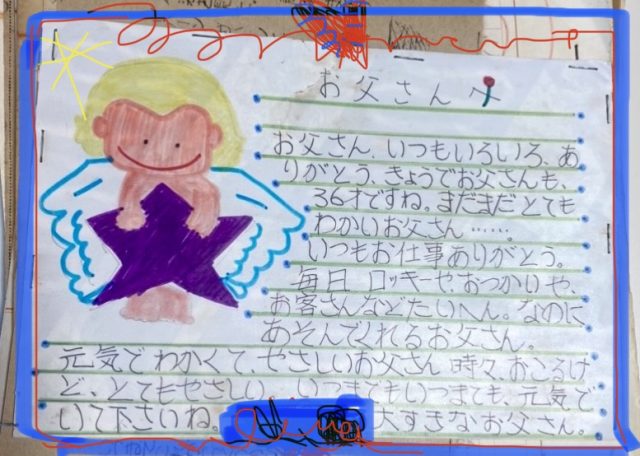 お父さんへ
お父さん、いつもいろいろ、あ
りがとう、きょうでお父さんも、
36才ですね。まだまだとても
わかいお父さん……。
いつもお仕事ありがとう。
毎日、ロッキーや、おつかいや、
お客さんなどたいへん。なのに
あそんでくれるお父さん。
元気でわかくて、やさしいお父さん 時々、おこるけ
ど、とてもやさしい、いつまでもいつまでも、元気で
いて下さいね。 大すきなお父さん。